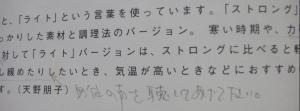 と、「ライト」という言葉を使っています。「ストロング」
っかりした素材と調理法のバージョン。 寒い時期や、カ
対して「ライト」バージョンは、ストロングに比べると
し緩めたりしたいとき、気温が高いときなどにおすすめ
す。(天野朋子) の声を聴いてあげてね。